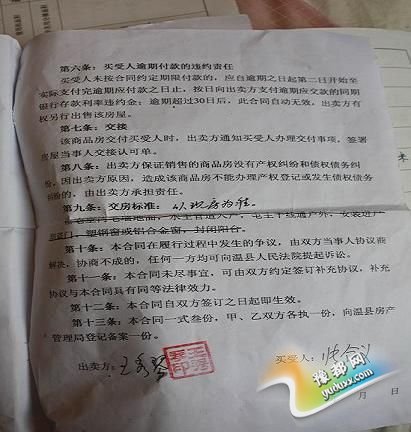 第六条：买受人逾期付款的违约责任
买受人未按合同约定期限付款的，应自逾期之日起第二日开始至
实际支付完逾期应付款之日止，按日向出卖方支付逾期应交款的同期
银行存款利率违约金；逾期超过30日后，此合同自动无效，出卖方有
权另行出售该房屋。
第七条：交接
该商品房交付买受人时，出卖方通知买受人办理交付事项，签署
房屋当事人交接认可单。
第八条：出卖方保证销售的商品房没有产权纠纷和债权债务纠
纷，因出卖方原因，造成该商品房不能办理产权登记或发生债权债务
纠纷的，由出卖方承担责任。
第九条：交房标准：以现房为准
塑钢窗或铝合金窗，封闭阳台。
第十条：本合同在履行过程中发生的争议，由双方当事人协议商
解决，协商不成的，任何一方均可向温县人民法院提起诉讼。
第十一条：本合同未尽事宜，可由双方约定签订补充协议，补充
协议与本合同具有同等法律效力。
第十二条：本合同自双方签订之日起即生效。
第十三条：本合同一式叁份，甲、乙双方各执一份，向温县房产
管理局登记备案一份。
出卖方：
买受人：
月 日
豫都网
yuduxx.com